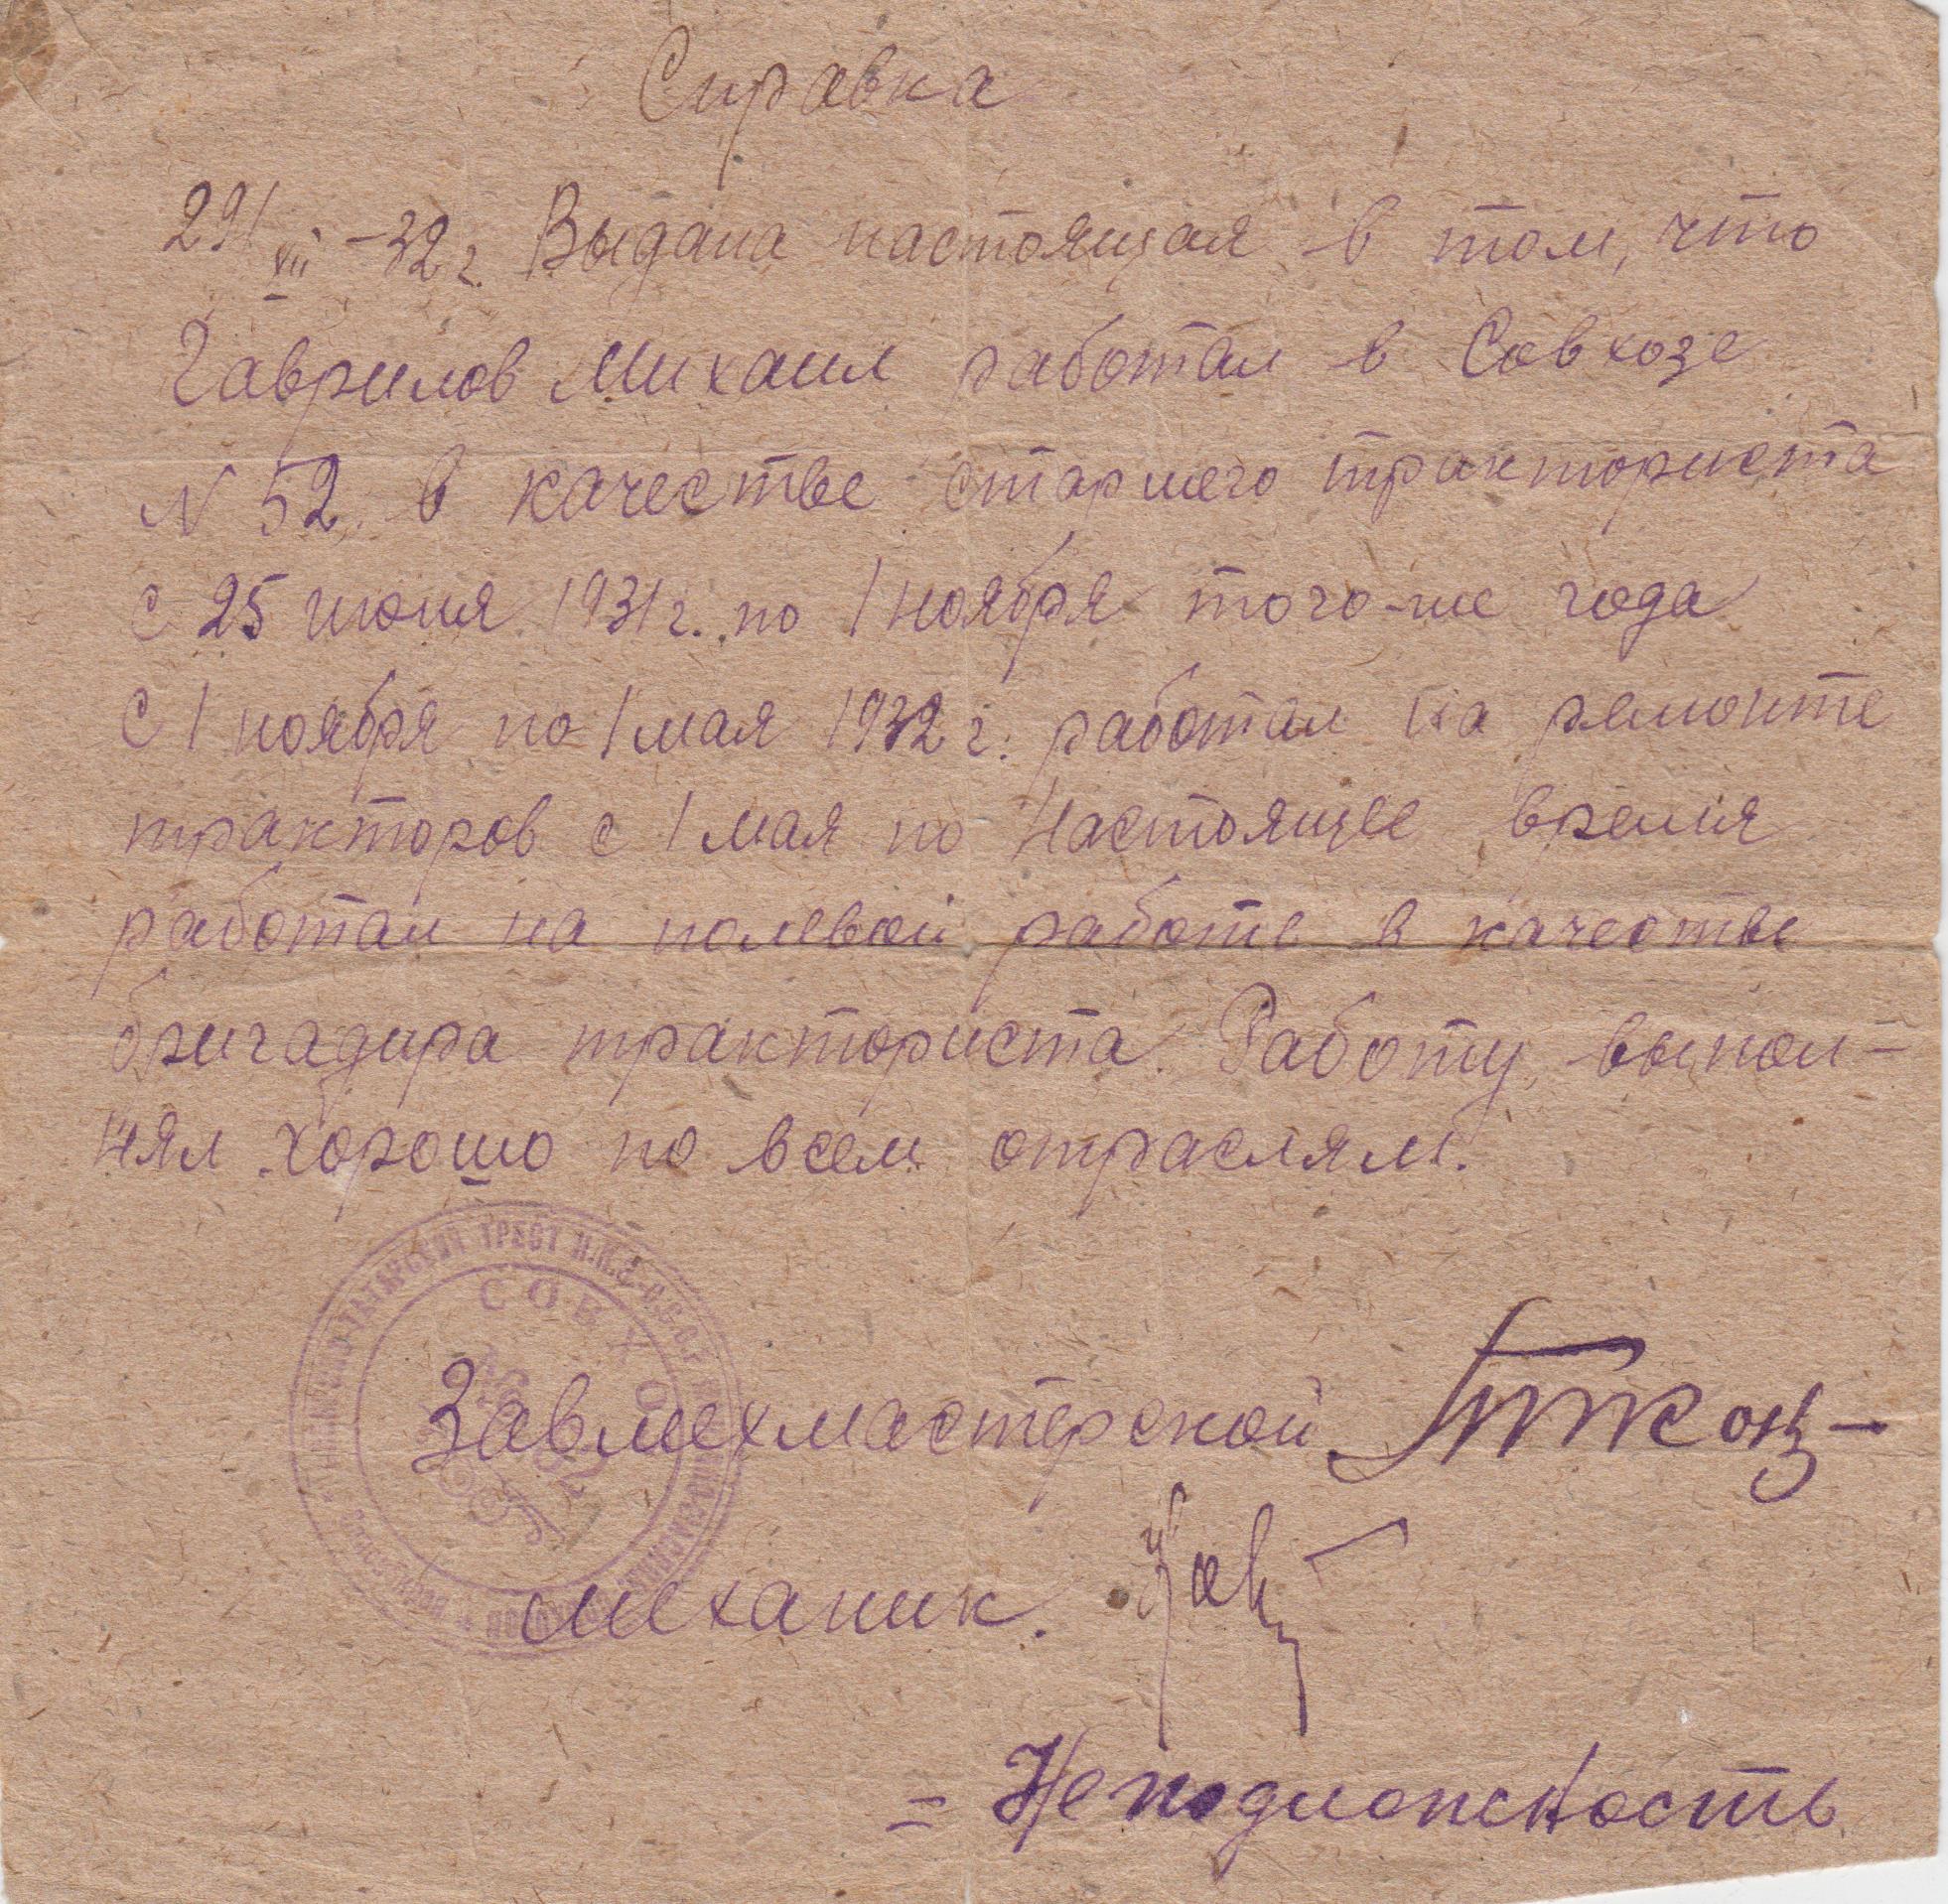 Справка
29/VII-32 г. Выдана настоящая в том, что
Гаврилов Михаил работал в Совхозе
N 52 в качестве старшего тракториста
с 25 июня 1931 г. по 1 ноября того-же года
с 1 ноября по 1 мая 1932 г. работал на ремонте
тракторов с 1 мая по настоящее время
работал на полевой работе в качестве
бригадира тракториста. Работу выпол-
нял хорошо по всем отраслям.
ТАТАРСКИЙ ТРЕСТ
СОВХОЗ
№ 52
Завмехмастерской
механик.
= Неподложность